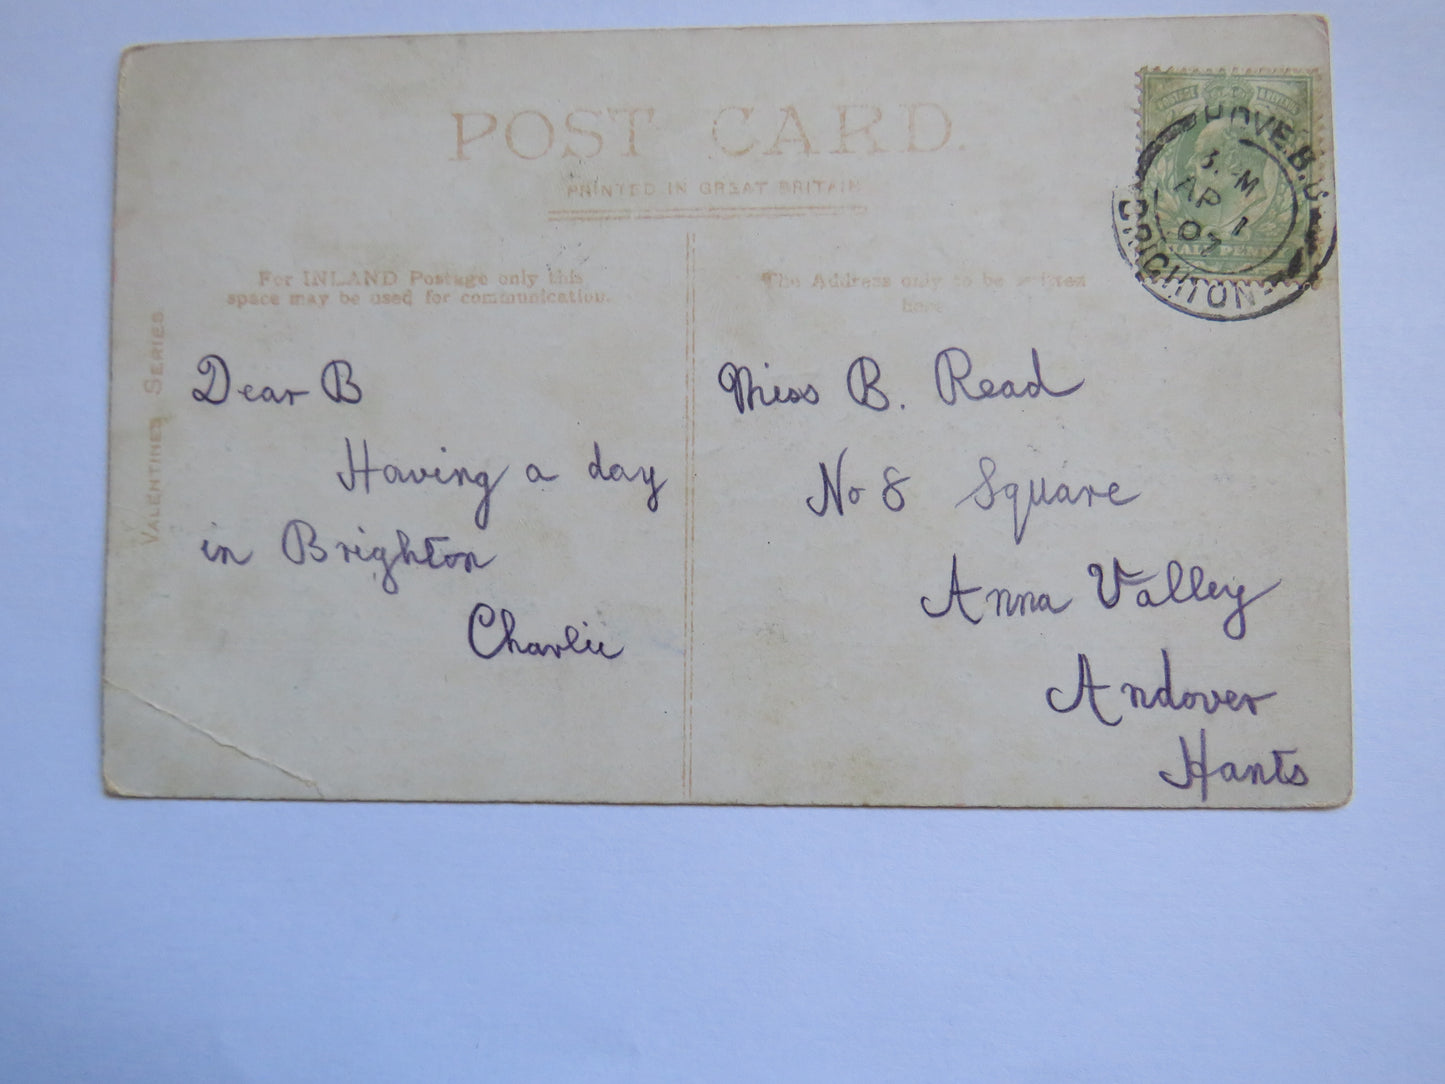 POST CARD.
PRINTED IN GREAT BRITAIN
For INLAND Postage only this
space may be used for communication.
The Address only to be written
here
VALENTINES SERIES
POSTAGE
HALFPENNY
HOVE. B.O
AP 1
07
BRIGHTON
Dear B
Having a day
in Brighton
Charlie
Miss B. Read
No 8 Square
Anna Valley
Andover
Hants